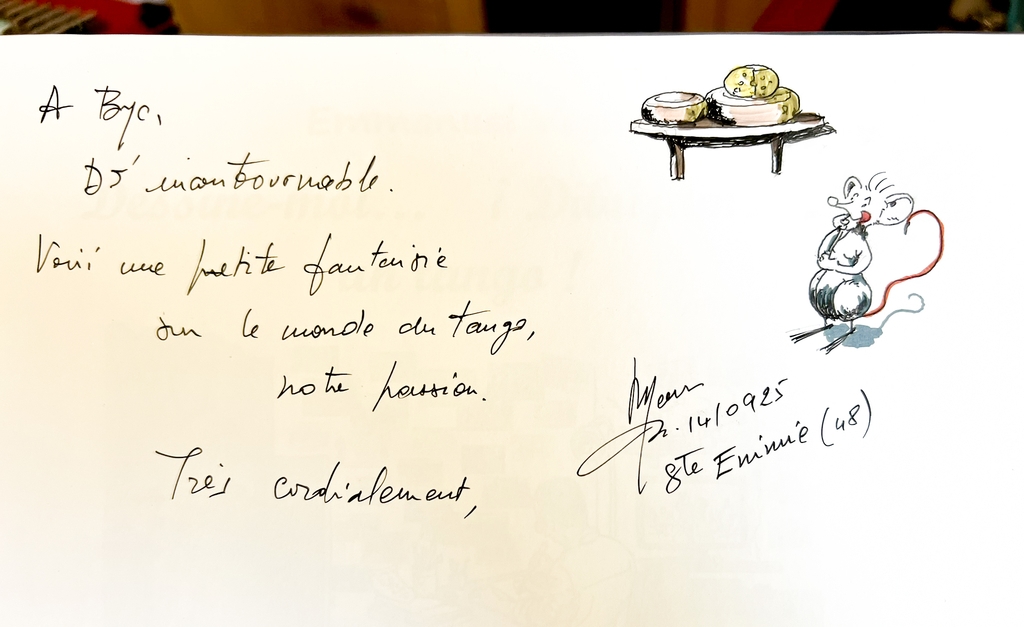 A Byc,
DJ incontournable.
Voici une petite fantaisie
sur le monde du tango,
notre passion.
Très cordialement,
14/0925
Ste Enimie (48)